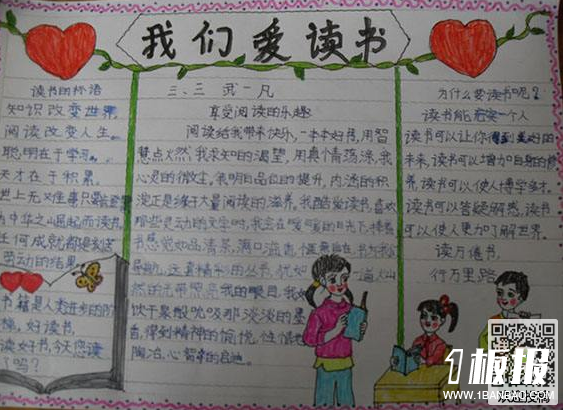 我们爱读书
读书的标语
知识改变世界,
阅读改变人生。
聪明在于学习,
天才在于积累。
世上无义难事只
中华之山屈起而读书,
任何成就都是刻苦
劳动的结果。
书籍是人类进步的阶
梯,好读书,
读好书,今天您读
了吗?
三、三 武一凡
享受阅读的乐趣
阅读给我带来快乐,一本本好书,用智
慧点火然,我求知的渴望,用真情荡涤,我
心灵的微尘,我明白品位的提升,内涵的积
淀正是缘于大量阅读的滋养,我酷爱读书,喜欢
那些灵动的文字时,我会在暖暖的日光下棒着
书
的眼目,我如
饮干泉般吮吸那淡淡的墨
香,得到精神的愉悦,性情
陶冶,心智的启迪。
为什么要读书呢?
读书能启突一个人
读书可以让你得到美好的
未来,读书可以增力口自己的修
养,读书可以使人博学多才,
读书可以答疑解惑,读书
可以使人更加了解世界。
读万卷书,
行万里路
1板报
WWW.1BANBAO.COM